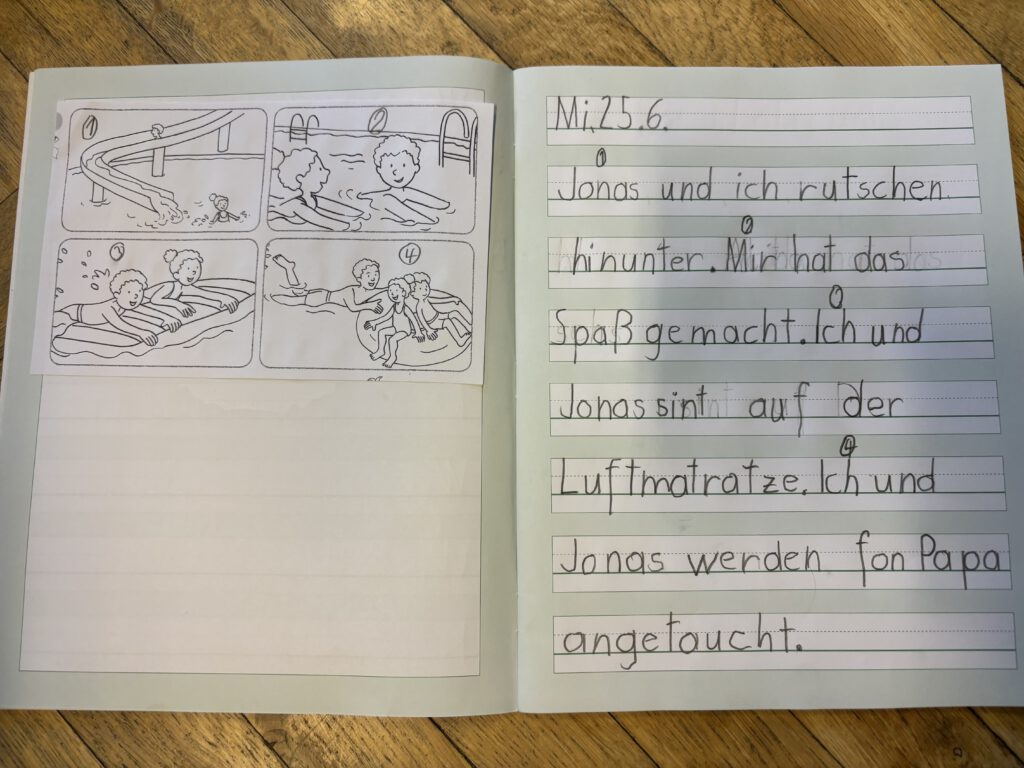 1
4
Mi. 25.6.
Jonas und ich rutschen
hinunter. Mir hat das
Spaß gemacht. Ich und
Jonas sint auf der
4
Luftmatratze. Ich und
Jonas werden fon Papa
angetaucht.